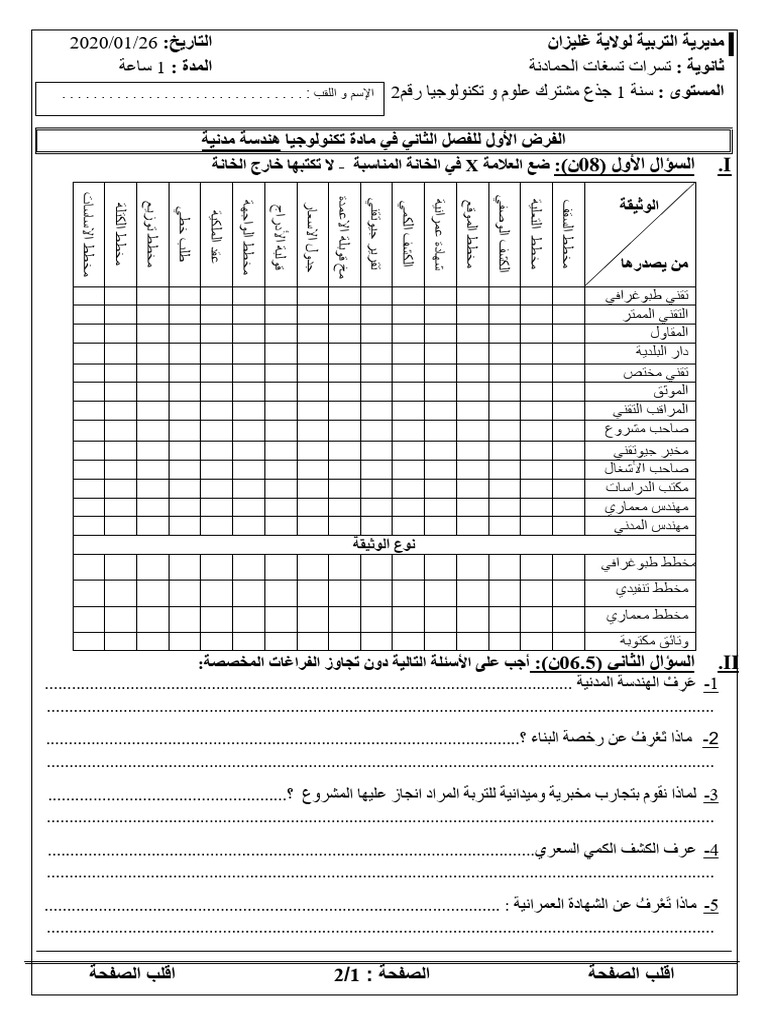 مديرية التربية لولاية غليزان
التاريخ: 2020/01/26
ثانوية : تسرات تسغات الحمادنة
المدة : 1 ساعة
المستوى : سنة 1 جذع مشترك علوم و تكنولوجيا رقم2
الإسم و اللقب : . . . . . . . . . . . . . . . . . . . . . . . . . . . . . . .
الفرض الأول للفصل الثاني في مادة تكنولوجيا هندسة مدنية
I. السؤال الأول (08ن): ضع العلامة X في الخانة المناسبة - لا تكتبها خارج الخانة
الوثيقة
من يصدرها
مخطط السقف
مخطط التعلية
الكشف الوصفي
مخطط الموقع
شهادة عمرانية
الكشف الكمي
تقرير جيوتقني
مخ قولبة الاعمدة
جدول الاسعار
قولبة الأدراج
مخطط الواجهة
عقد الملكية
طلب خطي
مخطط توزيع
مخطط الكتلة
مخطط الاساسات
تقني طبوغرافي
التقني الممتر
المقاول
دار البلدية
تقني مختص
الموثق
المراقب التقني
صاحب مشروع
مخبر جيوتقني
صاحب الأشغال
مكتب الدراسات
مهندس معماري
مهندس المدني
نوع الوثيقة
مخطط طبوغرافي
مخطط تنفيذي
مخطط معماري
وثائق مكتوبة
II. السؤال الثاني (06.5ن): أجب على الأسئلة التالية دون تجاوز الفراغات المخصصة:
1- عَرفْ الهندسة المدنية ......................................................................................................................
......................................................................................................................................................
2- ماذا تَعْرفُ عن رخصة البناء ؟..........................................................................................................
......................................................................................................................................................
3- لماذا نقوم بتجارب مخبرية وميدانية للتربة المراد انجاز عليها المشروع ؟.....................................................
......................................................................................................................................................
4- عرف الكشف الكمي السعري............................................................................................................
......................................................................................................................................................
5- ماذا تَعْرفُ عن الشهادة العمرانية : .....................................................................................................
......................................................................................................................................................
اقلب الصفحة الصفحة : 2/1 اقلب الصفحة